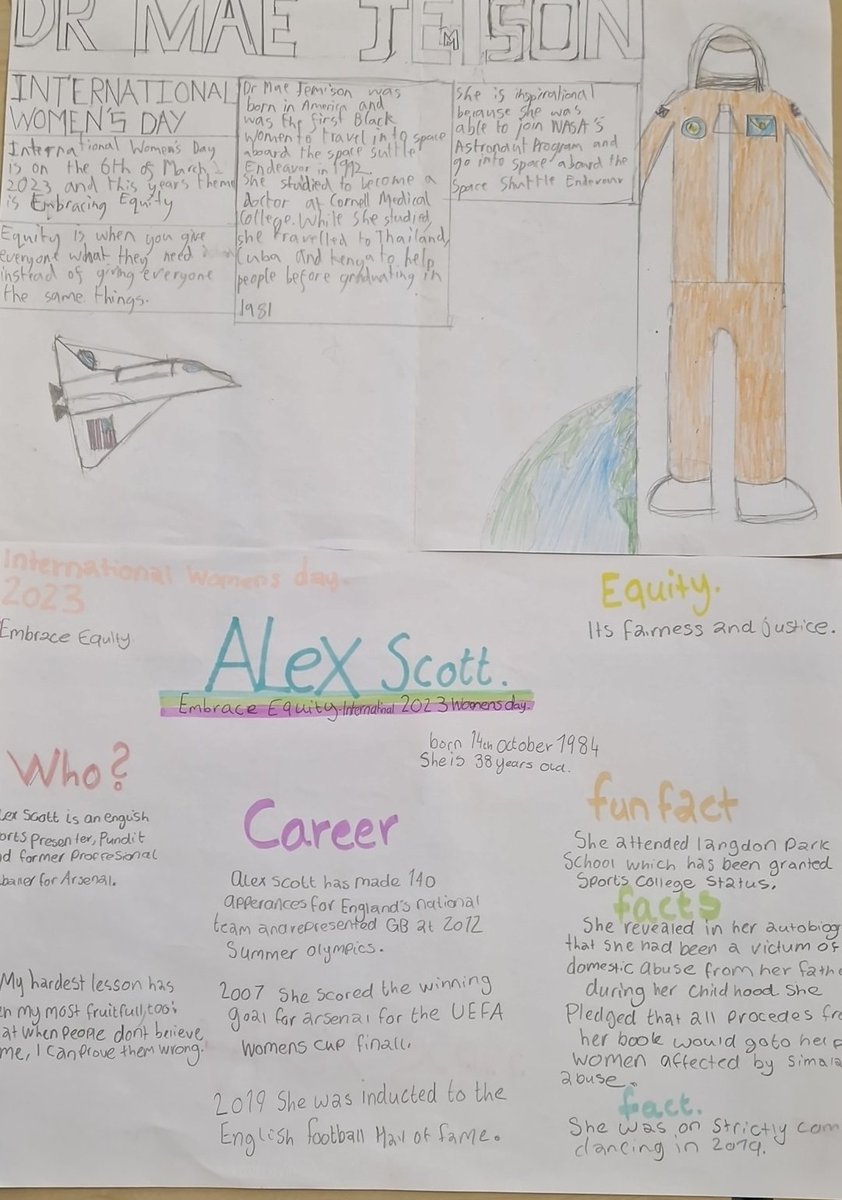 DR MAE JEMISON
INTERNATIONAL
WOMEN'S DAY
International Women's Day
is on the 6th of March
2023 and this years theme
is Embracing Equity
Equity is when you give
everyone what they need
instead of giving everyone
the same things.
Dr Mae Jemison was
born in America and
was the first Black
women to travel into space
aboard the space suttle
Endeavor in 1992.
She studied to become a
doctor at Cornell Medical
College. While she studied,
she travelled to Thailand,
Cuba and Kenya to help
people before graduating in
1981
She is inspirational
because she was
able to join NASA's
Astronaut Program and
go into space aboard the
Space Shuttle Endevour
International Womens day.
2023
Embrace Equity
Equity.
Its fairness and justice.
ALex Scott.
Embrace Equity-Internatinal 2023 Womens day.
born 14th October 1984
She is 38 years old.
Who?
lex Scott is an english
orts presenter, Pundit
d former Procresional
baller for Arsenal.
My hardest lesson has
n my most fruitfull, too:
at when people dont believe
me, I can prove them wrong.
Career
Alex Scott has made 140
apperances for England's national
team and represented GB at 2012
Summer olympics.
2007 She scored the winning
goal for arsenal for the UEFA
womens cup finall.
2019 She was inducted to the
English football Hall of fame.
fun fact
She attended langdon Park
School which has been granted
Sports College Status.
facts
She revealed in her autobiog
that she had been a victum of
domestic abuse from her fathe
during her childhood. She
Pledged that all procedes fro
her book would goto help
women affected by simala
abuse.
fact.
She was on Strictly com
dancing in 2019.